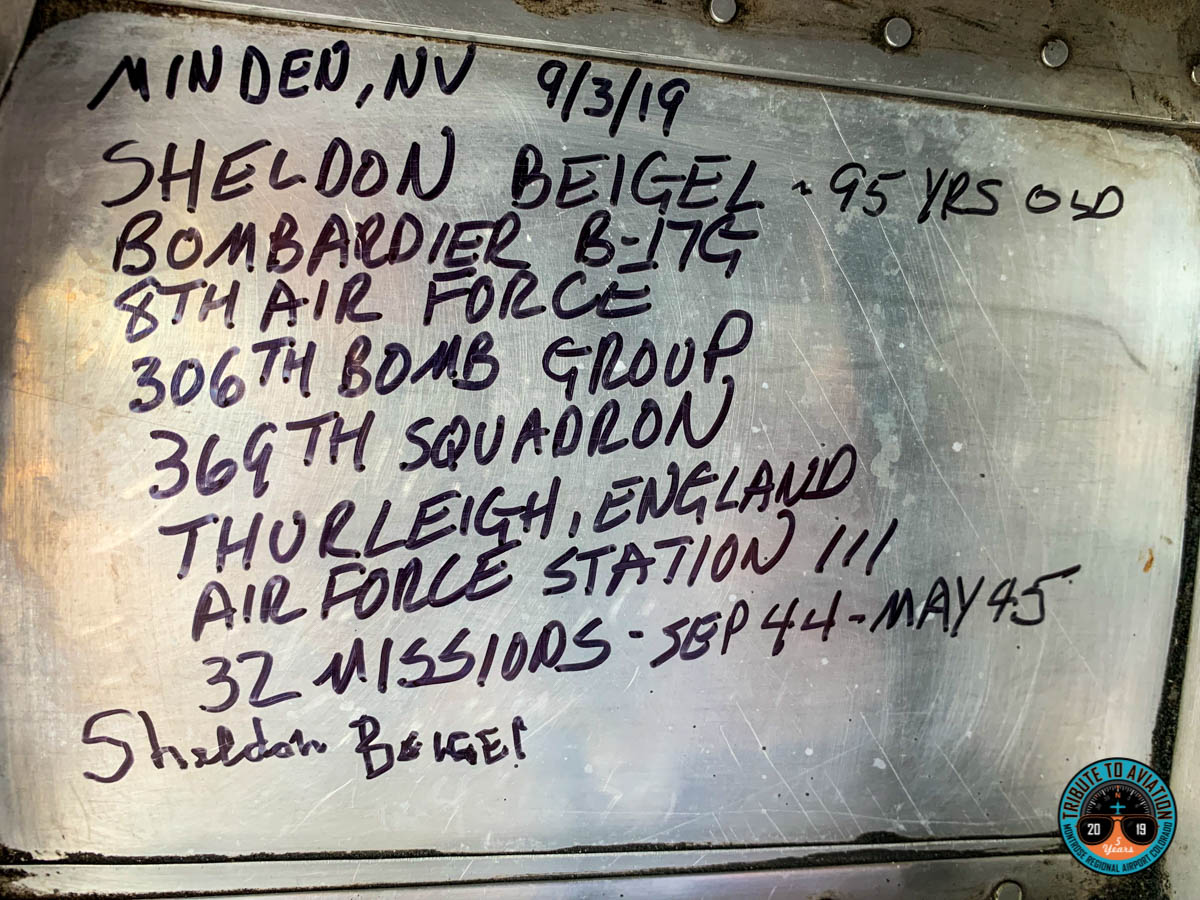 MINDEN, NV 9/3/19
SHELDON BEIGEL - 95 YRS OLD
BOMBARDIER B-17G
8TH AIR FORCE
306TH BOMB GROUP
369TH SQUADRON
THURLEIGH, ENGLAND
AIR FORCE STATION 111
32 MISSIONS - SEP 44 - MAY 45
Sheldon BEIGEl
TRIBUTE TO AVIATION
N
20 19
5
Years
MONTROSE REGIONAL AIRPORT COLORADO